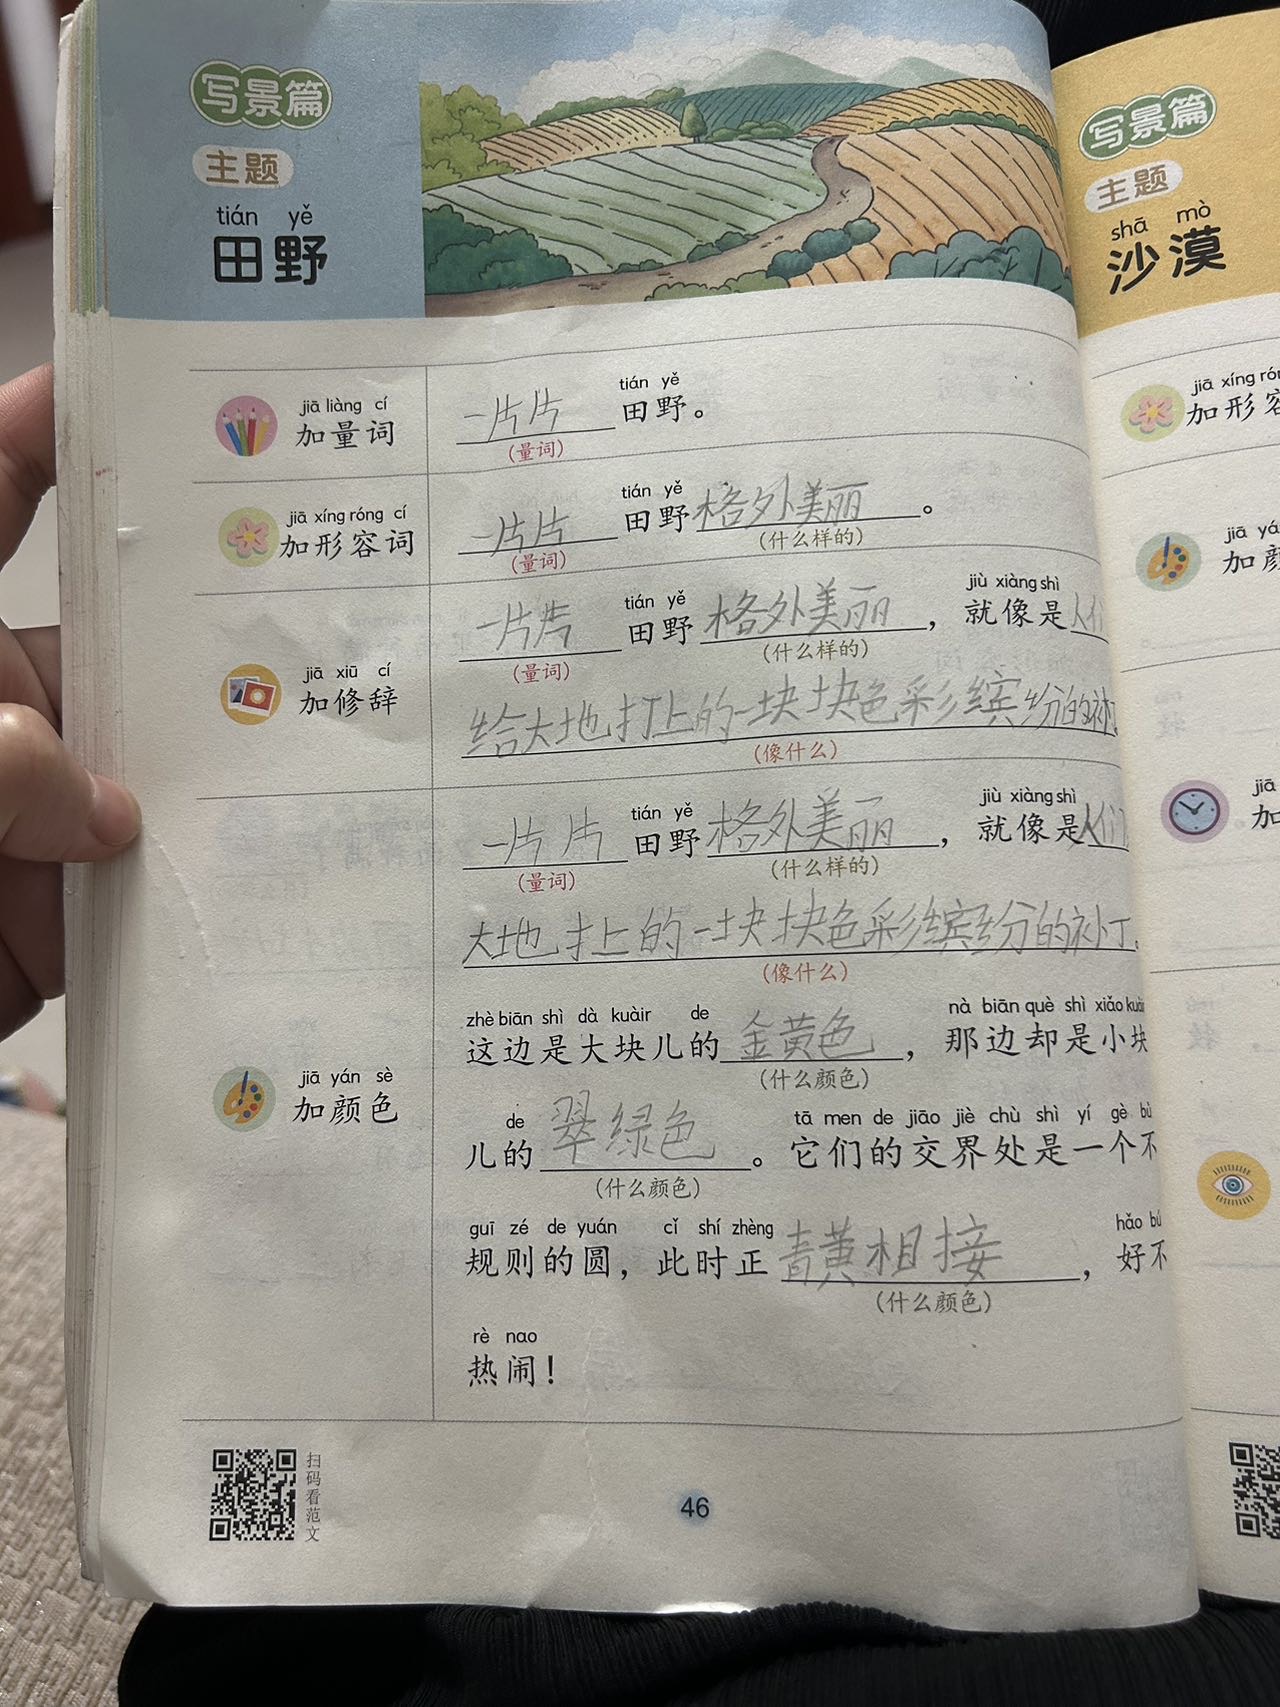 写景篇
主题
tián yě
田野
jiā liàng cí
加量词
一片片
tián yě
田野。
(量词)
jiā xíng róng cí
加形容词
一片片
tián yě
田野格外美丽。
(量词)
(什么样的)
jiā xiū cí
加修辞
一片片
tián yě
田野格外美丽，
jiù xiàng shì
就像是人们
(量词)
(什么样的)
给大地打上的一块块色彩缤纷的补丁
(像什么)
jiā yán sè
加颜色
一片片
tián yě
田野格外美丽，
jiù xiàng shì
就像是人们
(量词)
(什么样的)
大地打上的一块块色彩缤纷的补丁。
(像什么)
zhè biān shì dà kuàir de
nà biān què shì xiǎo kuài
这边是大块儿的金黄色，那边却是小块
(什么颜色)
de
tā men de jiāo jiè chù shì yí gè bù
儿的翠绿色。它们的交界处是一个不
(什么颜色)
guī zé de yuán cǐ shí zhèng
hǎo bù
规则的圆，此时正青黄相接，好不
(什么颜色)
rè nao
热闹！
扫码看范文
46
写景篇
主题
shā mò
沙漠
jiā xíng
加形容
jiā
加颜
jiā
加